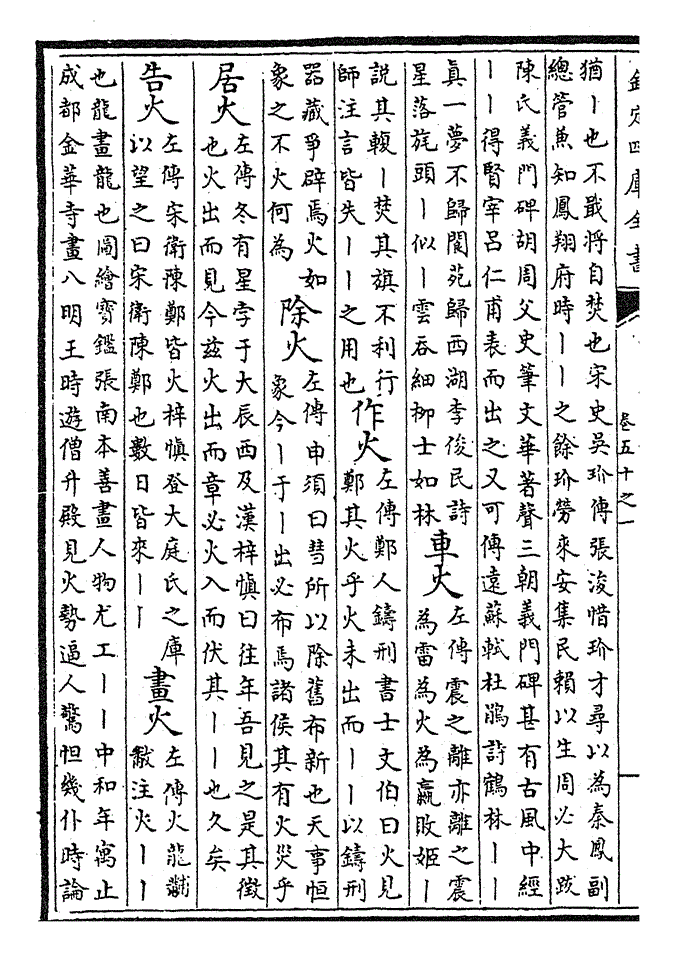 欽定四庫全書
卷五十之一
猶丨也不戢將自焚也宋史吳玠傳張浚惜玠才尋以為秦鳳副
總管兼知鳳翔府時丨丨之餘玠勞來安集民賴以生周必大跋
陳氏義門碑胡周父史筆文華著聲三朝義門碑甚有古風中經
丨丨得賢宰呂仁甫表而出之又可傳遠蘇軾杜鵑詩鶴林丨丨
真一夢不歸閬苑歸西湖李俊民詩
星落旄頭丨似丨雲吞細柳士如林
車火
左傳震之離亦離之震
為雷為火為嬴敗姬丨
說其輹丨焚其旗不利行
師注言皆失丨丨之用也
作火
左傳鄭人鑄刑書士文伯曰火見
鄭其火乎火未出而丨丨以鑄刑
器藏爭辟焉火如
象之不火何為
除火
左傳申須曰彗所以除舊布新也天事恒
象今丨于丨出必布焉諸侯其有火災乎
居火
左傳冬有星孛于大辰西及漢梓慎曰往年吾見之是其徵
也火出而見今兹火出而章必火入而伏其丨丨也久矣
告火
左傳宋衛陳鄭皆火梓慎登大庭氏之庫
以望之曰宋衛陳鄭也數日皆來丨丨
畫火
左傳火龍黼
黻注火丨丨
也龍畫龍也圖繪寶鑑張南本善畫人物尤工丨丨中和年寓止
成都金華寺畫八明王時遊僧升殿見火勢逼人驚怛幾仆時論